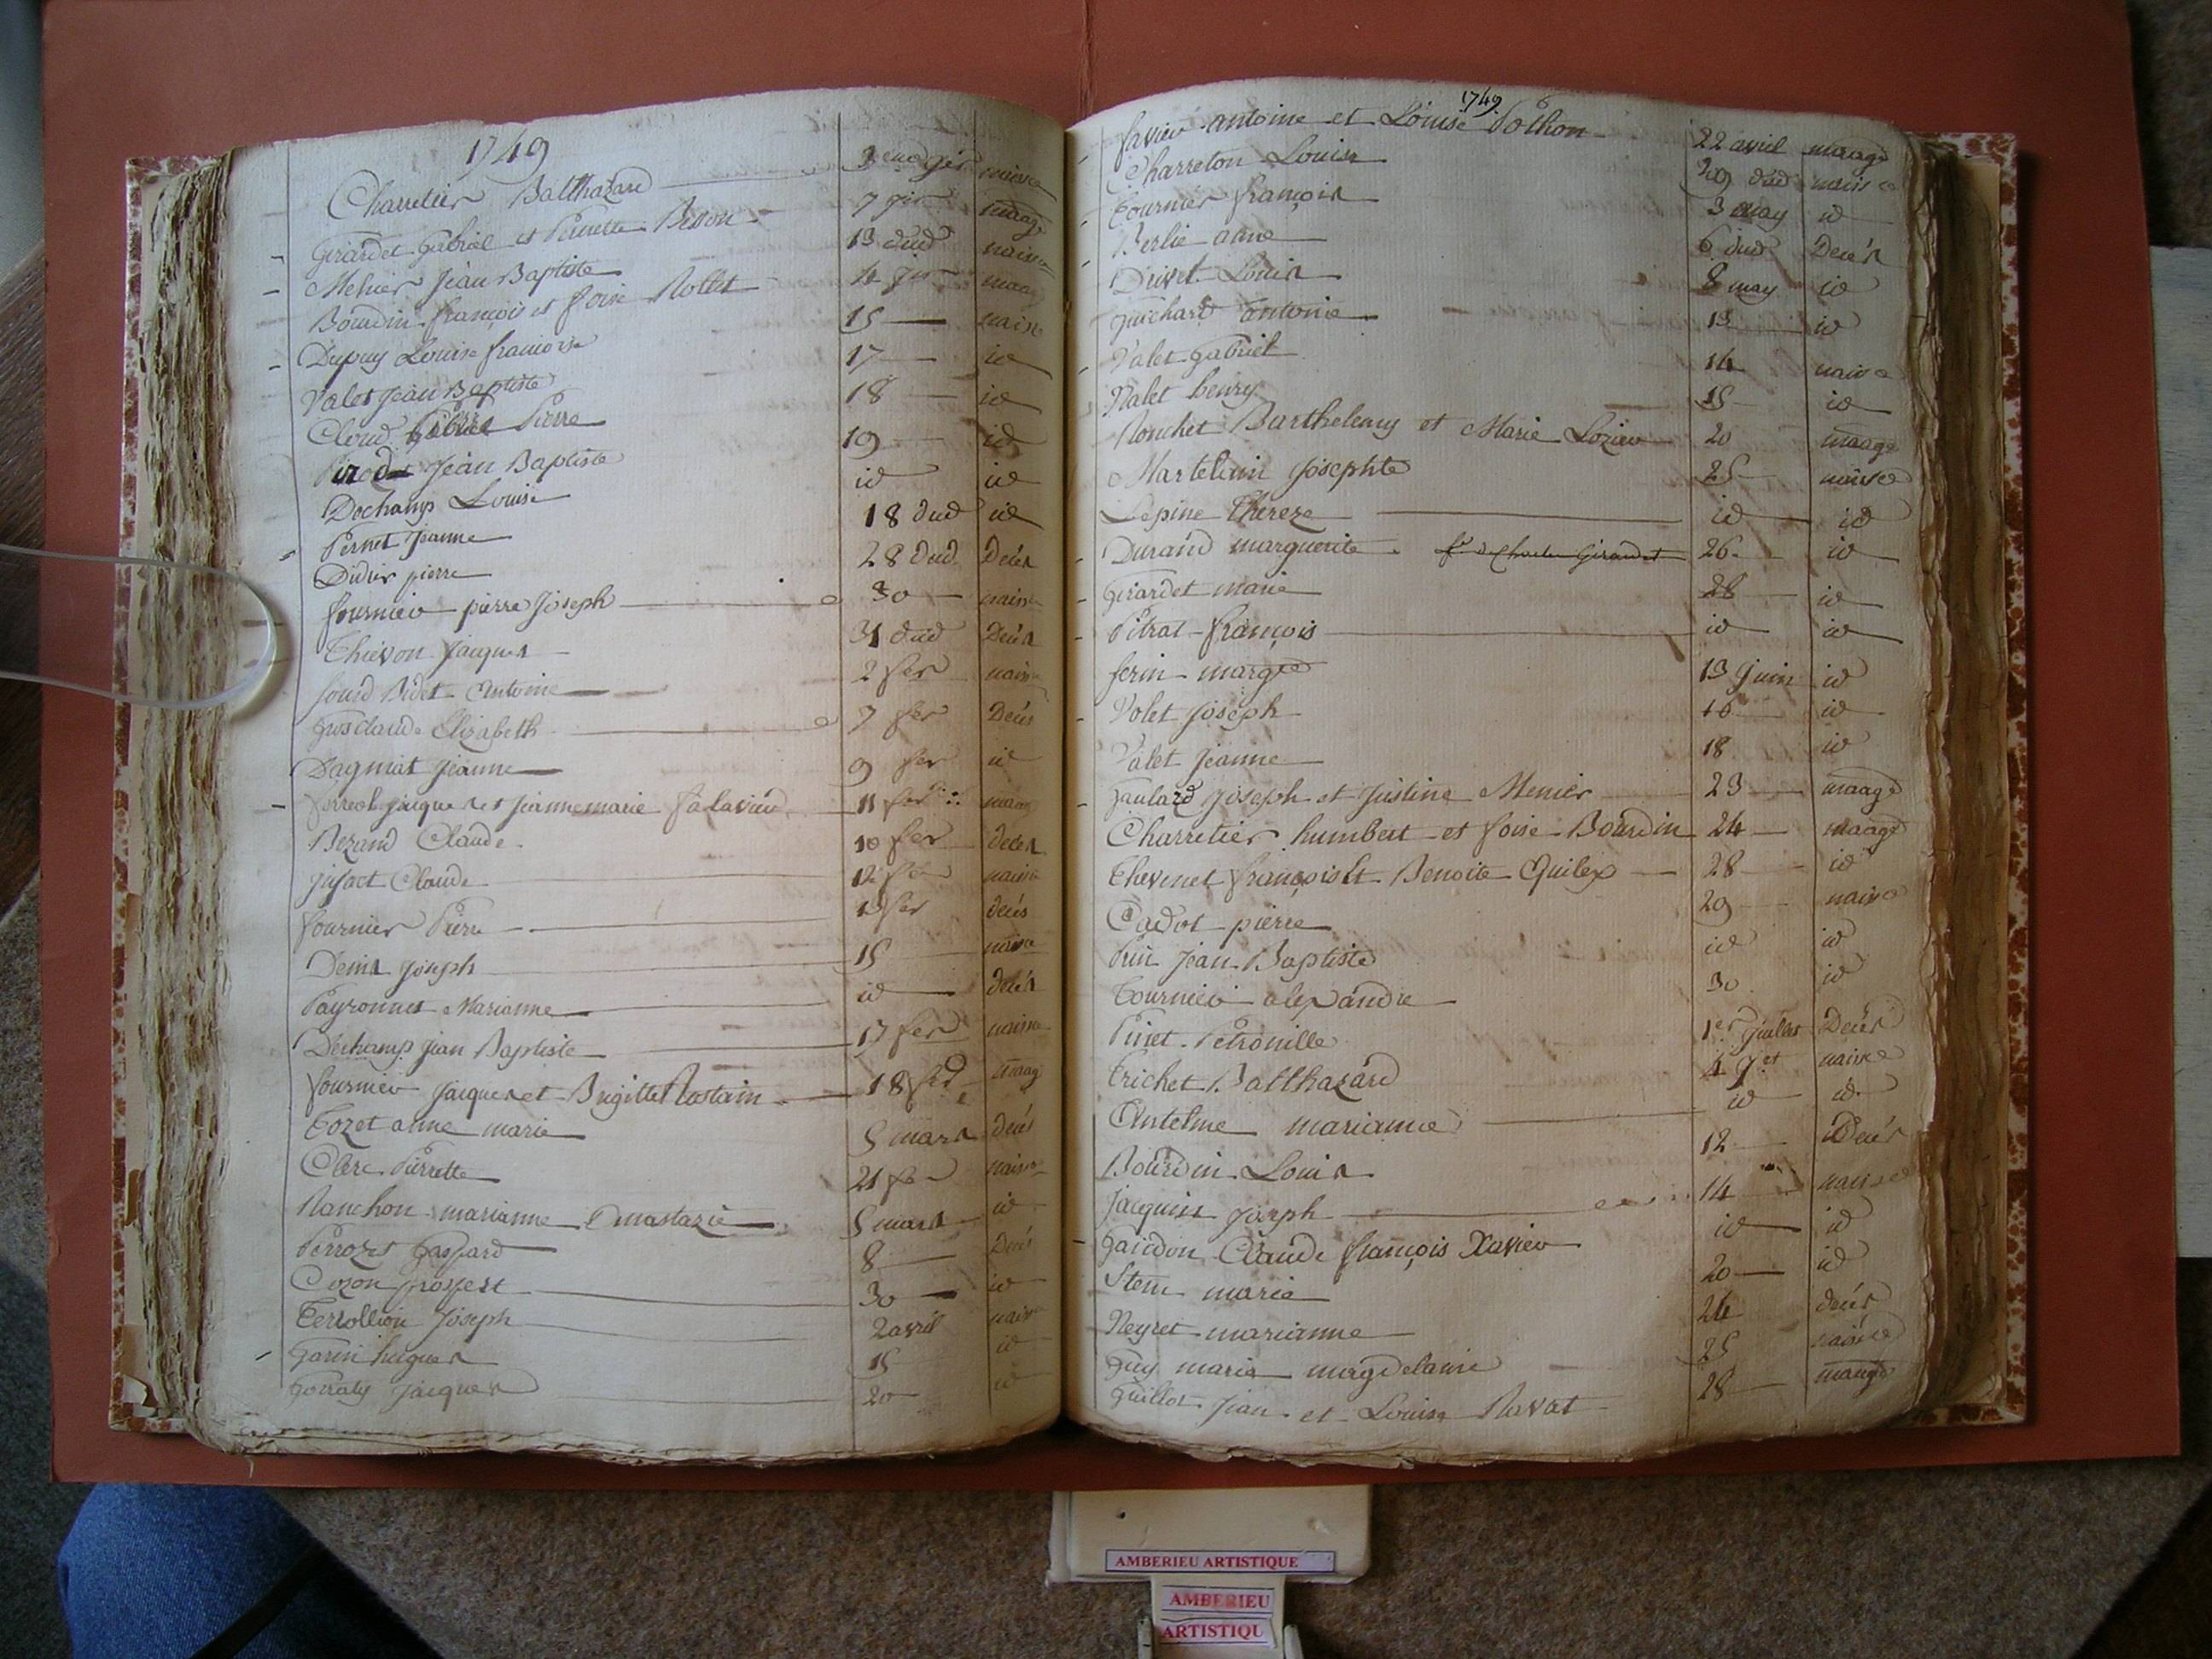 1749
Charretier Balthazard 3 naisce
Girardet Gabriel et Pierrette Bisson 7 maage
Mehier Jean Baptiste 13 dud naisce
Bourdin françois et foise Rollet 14 maag
Dupuy Louise francoise 15 naisce
Valet Jean Baptiste 17 id
Cloud Pierre 18 id
Jean Baptiste 19 id
Dechamp Louise id id
Pernet Jeanne 18 dud id
Didier pierre 28 dud Décés
fournier pierre Joseph 30 naisce
Thievon Jacques 31 dud Décés
Bidet Antoine 2 fer naisce
Grosclaude Elizabeth 7 fer Décés
Dagniat Jeanne 9 fer id
ferreol Jacques et Jeanne marie falavier 11 fer maag
Bezand Claude 10 fer deces
Jufact Claude 12 fer naisce
fournier Pierre fer décés
Denis Joseph 15 naisce
Payronnet Marianne id décés
Dechamp Jean Baptiste 17 fer naisce
fournier Jacques et Brigitte Rostain 18 fer maag
Tozet anne marie 5 mars décés
Clerc Pierrette 21 fer naisce
Ranchon marianne 5 mars id
Perrozet Gaspard 8 Décés
Cozon prospert 30 id
Terrollion Joseph 2 avril naisce
Garin hugues 15 id
Gonraty Jacques 20 id
1749
favier antoine et Louise Pothon 22 avril maage
Charreton Louise 29 dud naisce
Tournier françois 3 may id
Berlie anne 6 dud Décés
Drivet Louis 8 may id
Guichard antoine 13 id
Valet Gabriel 14 naisce
Valet henry 15 id
Ronchet Barthelemy et Marie Lozier 20 maage
Martelain Josephte 25 naisce
Lépine Thereze id id
Durand marguerite fe de Charles Girardet 26 id
Girardet marie 28 id
Pitrat françois id id
ferin margte 13 Juin id
Volet Joseph 16 id
Valet Jeanne 18 id
Gaulard Joseph et Justine Menier 23 maage
Charretier humbert et foise Bourdin 24 maage
Thevenet françois et Benoite Quilex 28 id
Cadot pierre 29 naisce
Prin Jean Baptiste id id
Tournier alexandre 30 id
Pinet Petronille 1er Juillet Décés
Trichet Balthazard 4 Jet naisce
Antelme marianne id id
Bourdin Louis 12 Décés
Jacquin Joseph 14 naisce
Gaicdon Claude françois Xavier id id
Stem marie 20 id
Neyret marianne 24 décés
Guy marie magdelaine 25 naisce
Guillot Jean et Louise Ravat 28 maage
AMBERIEU ARTISTIQUE
AMBERIEU
ARTISTIQU